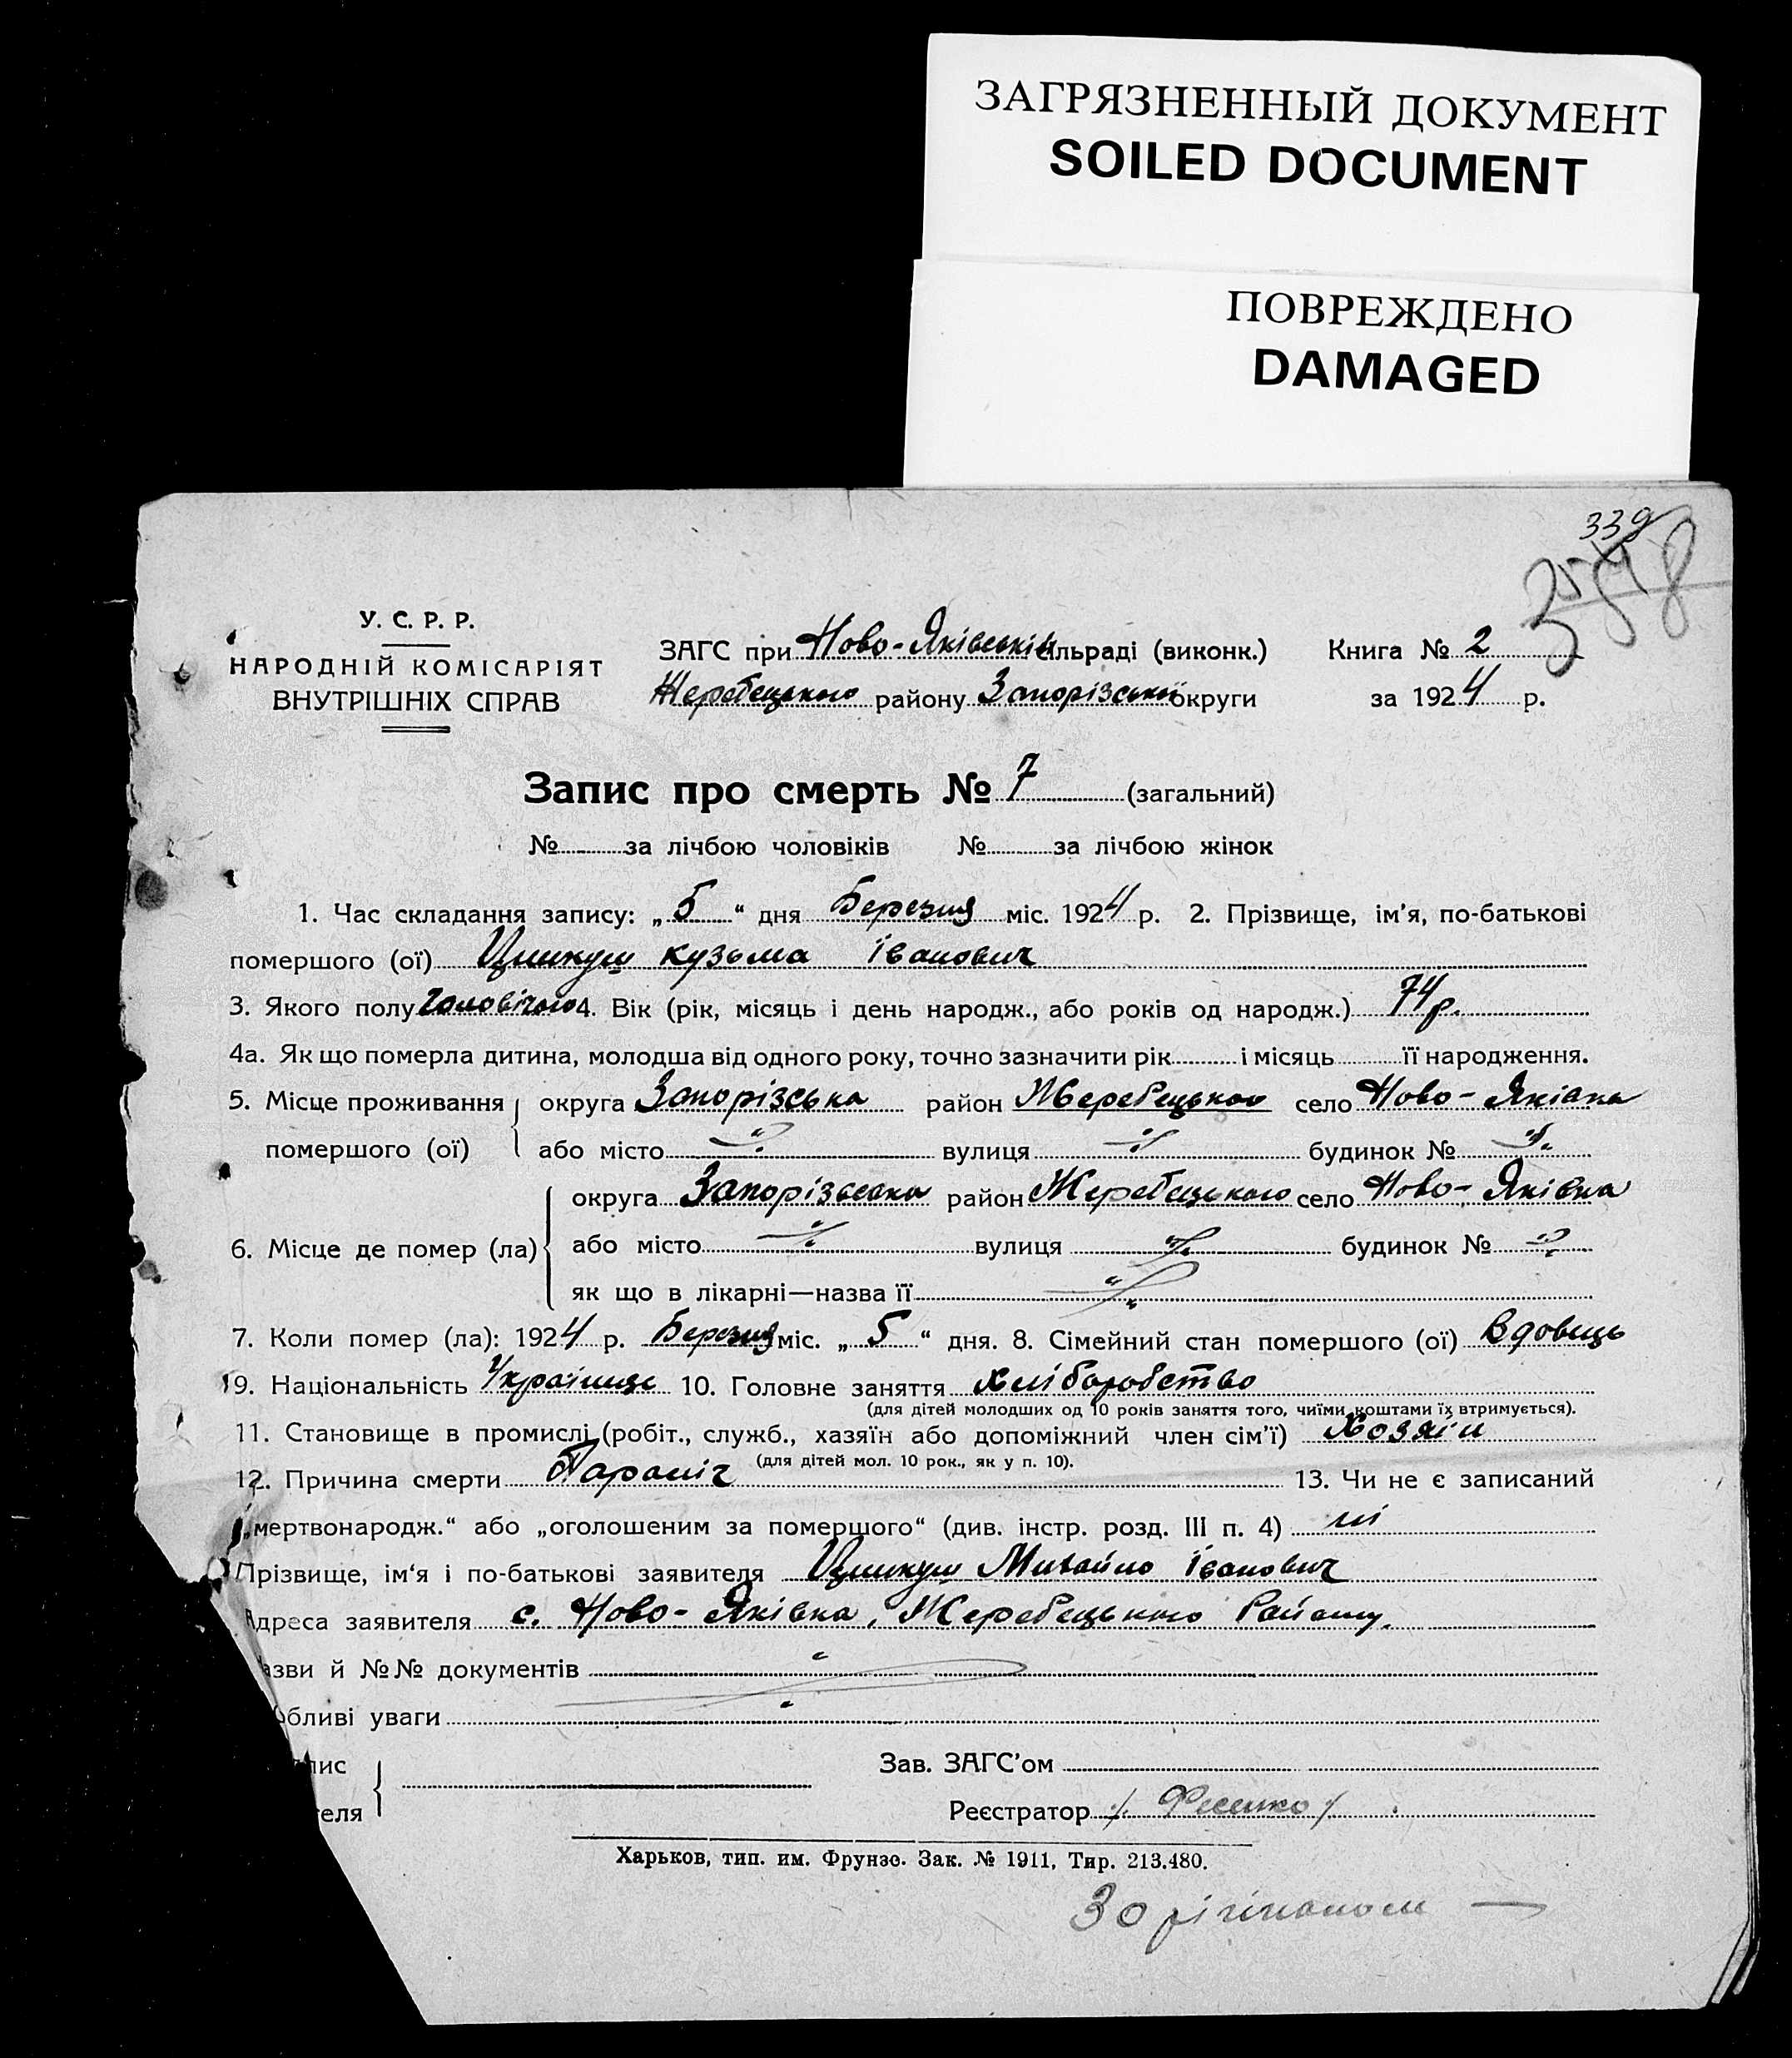 ЗАГРЯЗНЕННЫЙ ДОКУМЕНТ
SOILED DOCUMENT
ПОВРЕЖДЕНО
DAMAGED
339
У. С. Р. Р.
НАРОДНІЙ КОМІСАРІЯТ
ВНУТРІШНІХ СПРАВ
ЗАГС при Ново-Яківській сільраді (виконк.)
Жеребецького району Запорізської округи
Книга № 2
за 1924 р.
Запис про смерть № 7 (загальний)
№ за лічбою чоловіків № за лічбою жінок
1. Час складання запису: „5“ дня Березня міс. 1924 р. 2. Прізвище, ім’я, по-батькові
помершого (ої) Кузьма Іванович
3. Якого полу Чоловічого 4. Вік (рік, місяць і день народж., або років од народж.) 74 р.
4а. Як що померла дитина, молодша від одного року, точно зазначити рік і місяць її народження.
5. Місце проживання помершого (ої) округа Запорізська район Жеребецького село Ново-Яківка
або місто вулиця будинок №
6. Місце де помер (ла) округа Запорізьська район Жеребецького село Ново-Яківка
або місто вулиця будинок №
як що в лікарні—назва її
7. Коли помер (ла): 1924 р. Березня міс. „5“ дня. 8. Сімейний стан помершого (ої) Вдовець
9. Національність Українець 10. Головне заняття Хліборобство
(для дітей молодших од 10 років заняття того, чиїми коштами їх втримується).
11. Становище в промислі (робіт., служб., хазяїн або допоміжний член сім’ї) Хозяїн
(для дітей мол. 10 рок., як у п. 10).
12. Причина смерти Параліч 13. Чи не є записаний
„мертвонародж.“ або „оголошеним за помершого“ (див. інстр. розд. III п. 4) ні
Прізвище, ім‘я і по-батькові заявителя Михайло Іванович
Адреса заявителя с. Ново-Яківка, Жеребецького Району.
азви й №№ документів
бливі уваги
пис
теля
Зав. ЗАГС’ом
Реєстратор /. Фесенко /
Харьков, тип. им. Фрунзе. Зак. № 1911, Тир. 213.480.
З орігіналом —